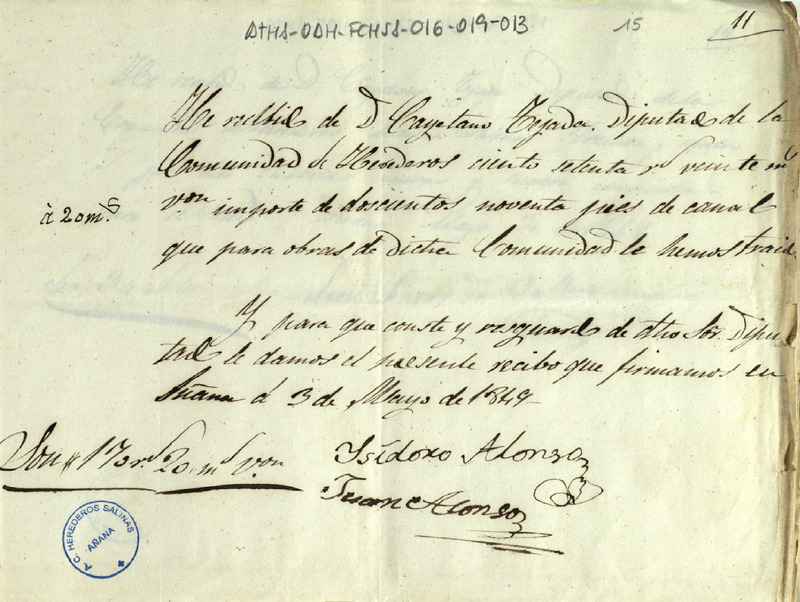 AtHS-ODH-FCHSS-016-019-013
15
11
He recibido de D Cayetano Tejada. Diputado de la
Comunidad de Herederos ciento setenta rs veinte ms
à 20 ms
von importe de doscientos noventa pies de canal
que para obras de dicha Comunidad le hemos traido
Y para que conste y resguardo de dho Sor. Dipu-
tado le damos el presente recibo que firmamos en
Añana à 3 de Mayo de 1849
Son # 170 rs 20 ms von
Isidoro Alonso
Juan Alonso
A. C. HEREDEROS SALINAS
AÑANA